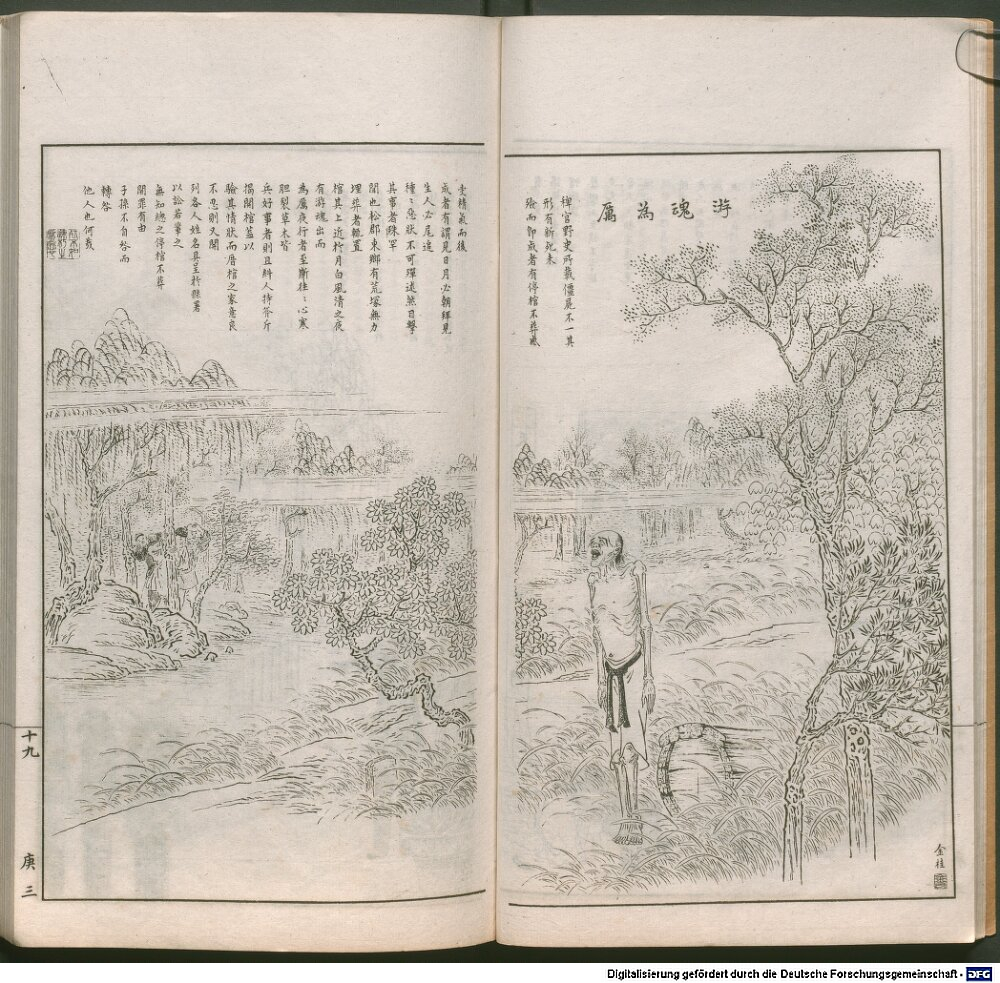 游魂為厲
稗官野史所載僵屍不一其
形有新死未
殮而即或者有停棺不葬感
受精氣而後
或者有謂見日月必朝拜見
生人必尾追
種種惡狀不可殫述然目擊
其事者殊罕
聞也松郡東鄉有荒塚無力
埋葬者輒置
棺其上近於月白風清之夜
有游魂出而
為厲夜行者至斷往往心寒
胆裂草木皆
兵好事者則且斜人持斧斤
揭開棺蓋以
驗其情狀而厝棺之家意良
不忍則又開
列各人姓名具呈於縣署
以訟若輩之
無知總之停棺不葬
開罪有由
子孫不自咎而
轉咎
他人也何哉
金桂
十九
庚三
Digitalisierung gefördert durch die Deutsche Forschungsgemeinschaft - DFG